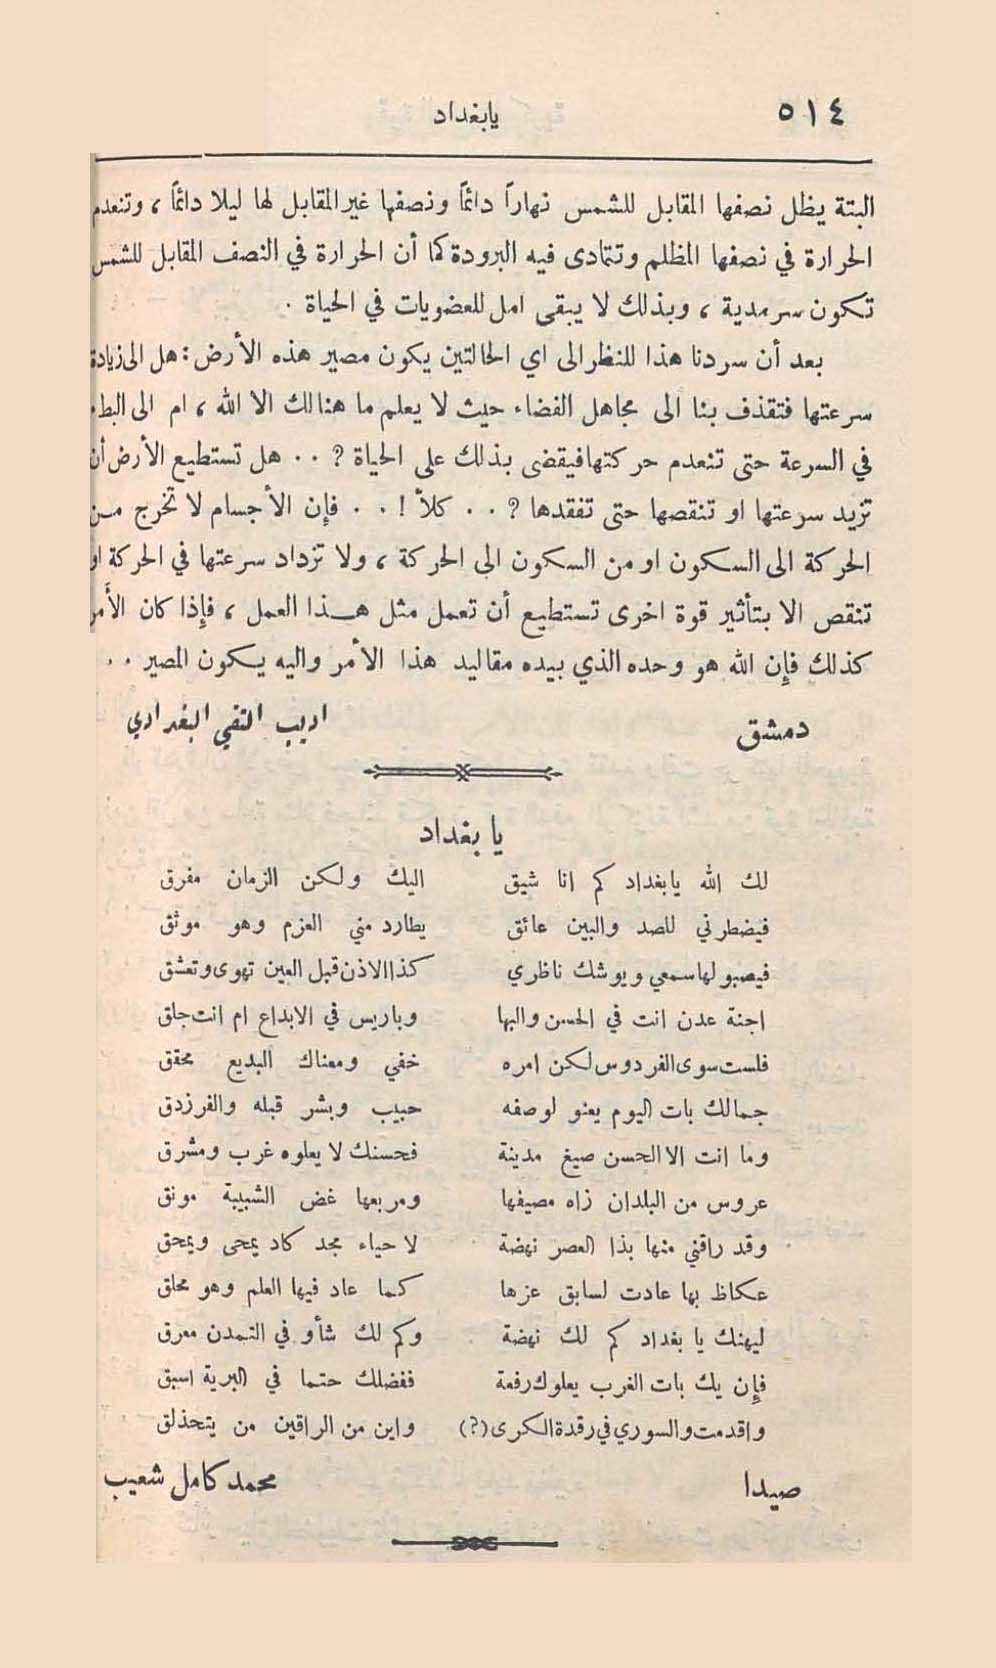 ٥١٤
يابغداد
البتة يظل نصفها المقابل للشمس نهاراً دائماً ونصفها غير المقابل لها ليلا دائماً ، وتنعدم
الحرارة في نصفها المظلم وتتمادى فيه البرودة كما أن الحرارة في النصف المقابل للشمس
تكون سرمدية ، وبذلك لا يبقى امل للعضويات في الحياة .
بعد أن سردنا هذا للنظر الى اي الحالتين يكون مصير هذه الأرض : هل الى زيادة
سرعتها فتقذف بنا الى مجاهل الفضاء حيث لا يعلم ما هنالك الا الله ، ام الى البطء
في السرعة حتى تنعدم حركتها فيقضى بذلك على الحياة ? . . هل تستطيع الأرض أن
تزيد سرعتها او تنقصها حتى تفقدها ? . . كلاً ! . . فإن الأجسام لا تخرج من
الحركة الى السكون او من السكون الى الحركة ، ولا تزداد سرعتها في الحركة او
تنقص الا بتأثير قوة اخرى تستطيع أن تعمل مثل هـذا العمل ، فإذا كان الأمر
كذلك فإن الله هو وحده الذي بيده مقاليد هذا الأمر واليه يكون المصير . .
دمشق اديب التقي البغدادي
يا بغداد
لك الله يابغداد كم انا شيق اليك ولكن الزمان مفرق
فيضطرني للصد والبين عائق يطارد مني العزم وهو موثق
فيصبو لها سمعي ويوشك ناظري كذا الاذن قبل العين تهوى وتعشق
اجنة عدن انت في الحسن والبها وباريس في الابداع ام انت جلق
فلست سوى الفردوس لكن امره خفي ومعناك البديع محقق
جمالك بات اليوم يعنو لوصفه حبيب وبشر قبله والفرزدق
وما انت الا الحسن صيغ مدينة فحسنك لا يعلوه غرب ومشرق
عروس من البلدان زاه مصيفها ومربعها غض الشبيبة مونق
وقد راقني منها بذا العصر نهضة لاحياء مجد كاد يمحى ويمحق
عكاظ بها عادت لسابق عزها كما عاد فيها العلم وهو محلق
ليهنك يا بغداد كم لك نهضة وكم لك شأو في التمدن معرق
فإن يك بات الغرب يعلوك رفعة ففضلك حتما في البرية اسبق
واقدمت والسوري في رقدة الكرى (?) واين من الراقين من يتحذلق
صيدا محمد كامل شعيب